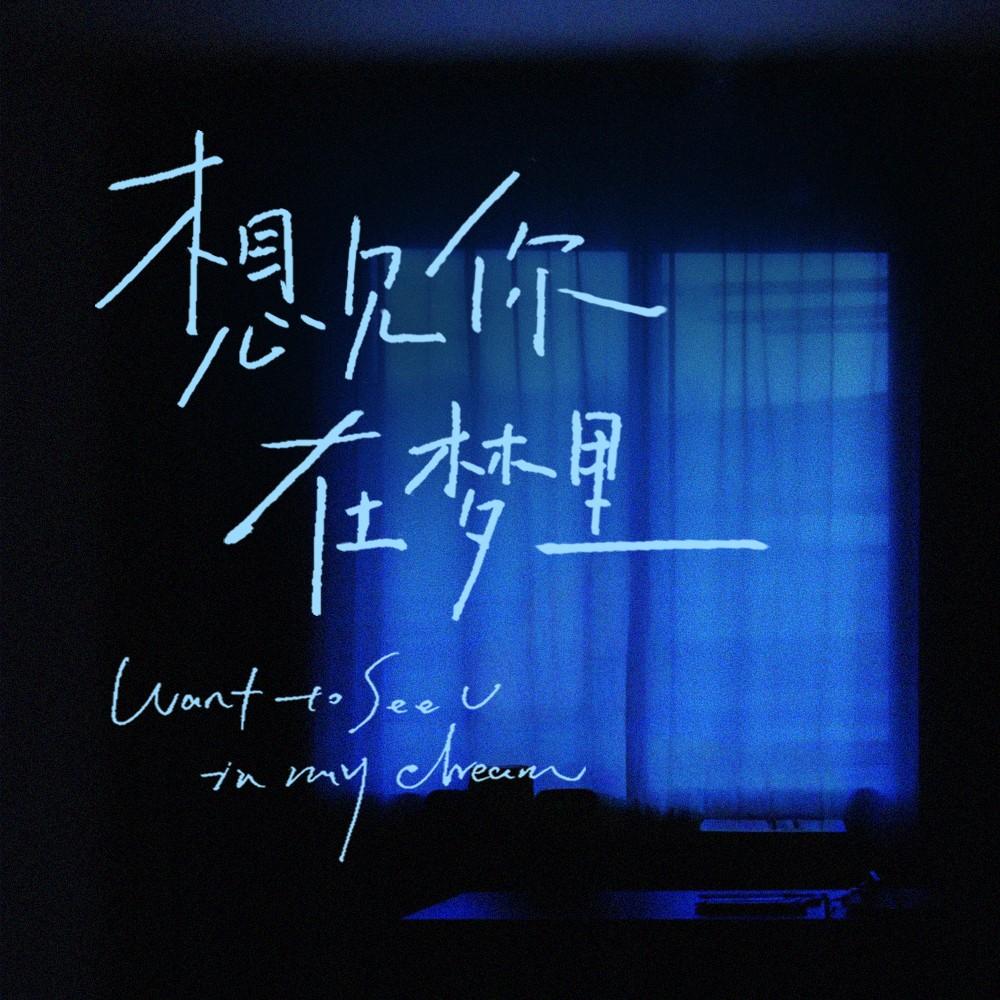 想见你
在梦里
Want to See U
in my dream